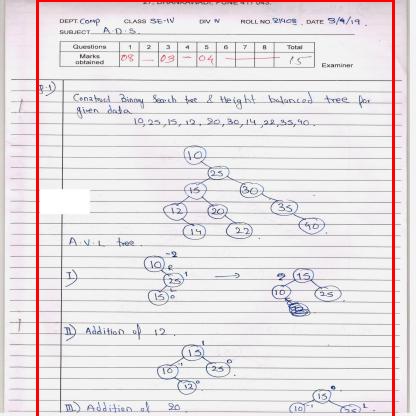 DEPT. Comp CLASS SE-IV DIV N ROLL NO. 21408 DATE 3/9/19.
SUBJECT A.D.S.
Questions 1 2 3 4 5 6 7 8 Total
Marks obtained 08 - 03 - 04 - - - 15 Examiner
Q.1)
Construct Binary Search tree & Height balanced tree for
given data
10,25,15,12,20,30,14,22,35,40.
10
25
15 30
12 20 35
14 22 40
A.V.L tree.
I) 10 -2 R 25 1 L 15 0 → 15 10 25
II) Addition of 12.
15 1
10 -1 25 0
12 0
III) Addition of 20
15 0
10 -1 25 L